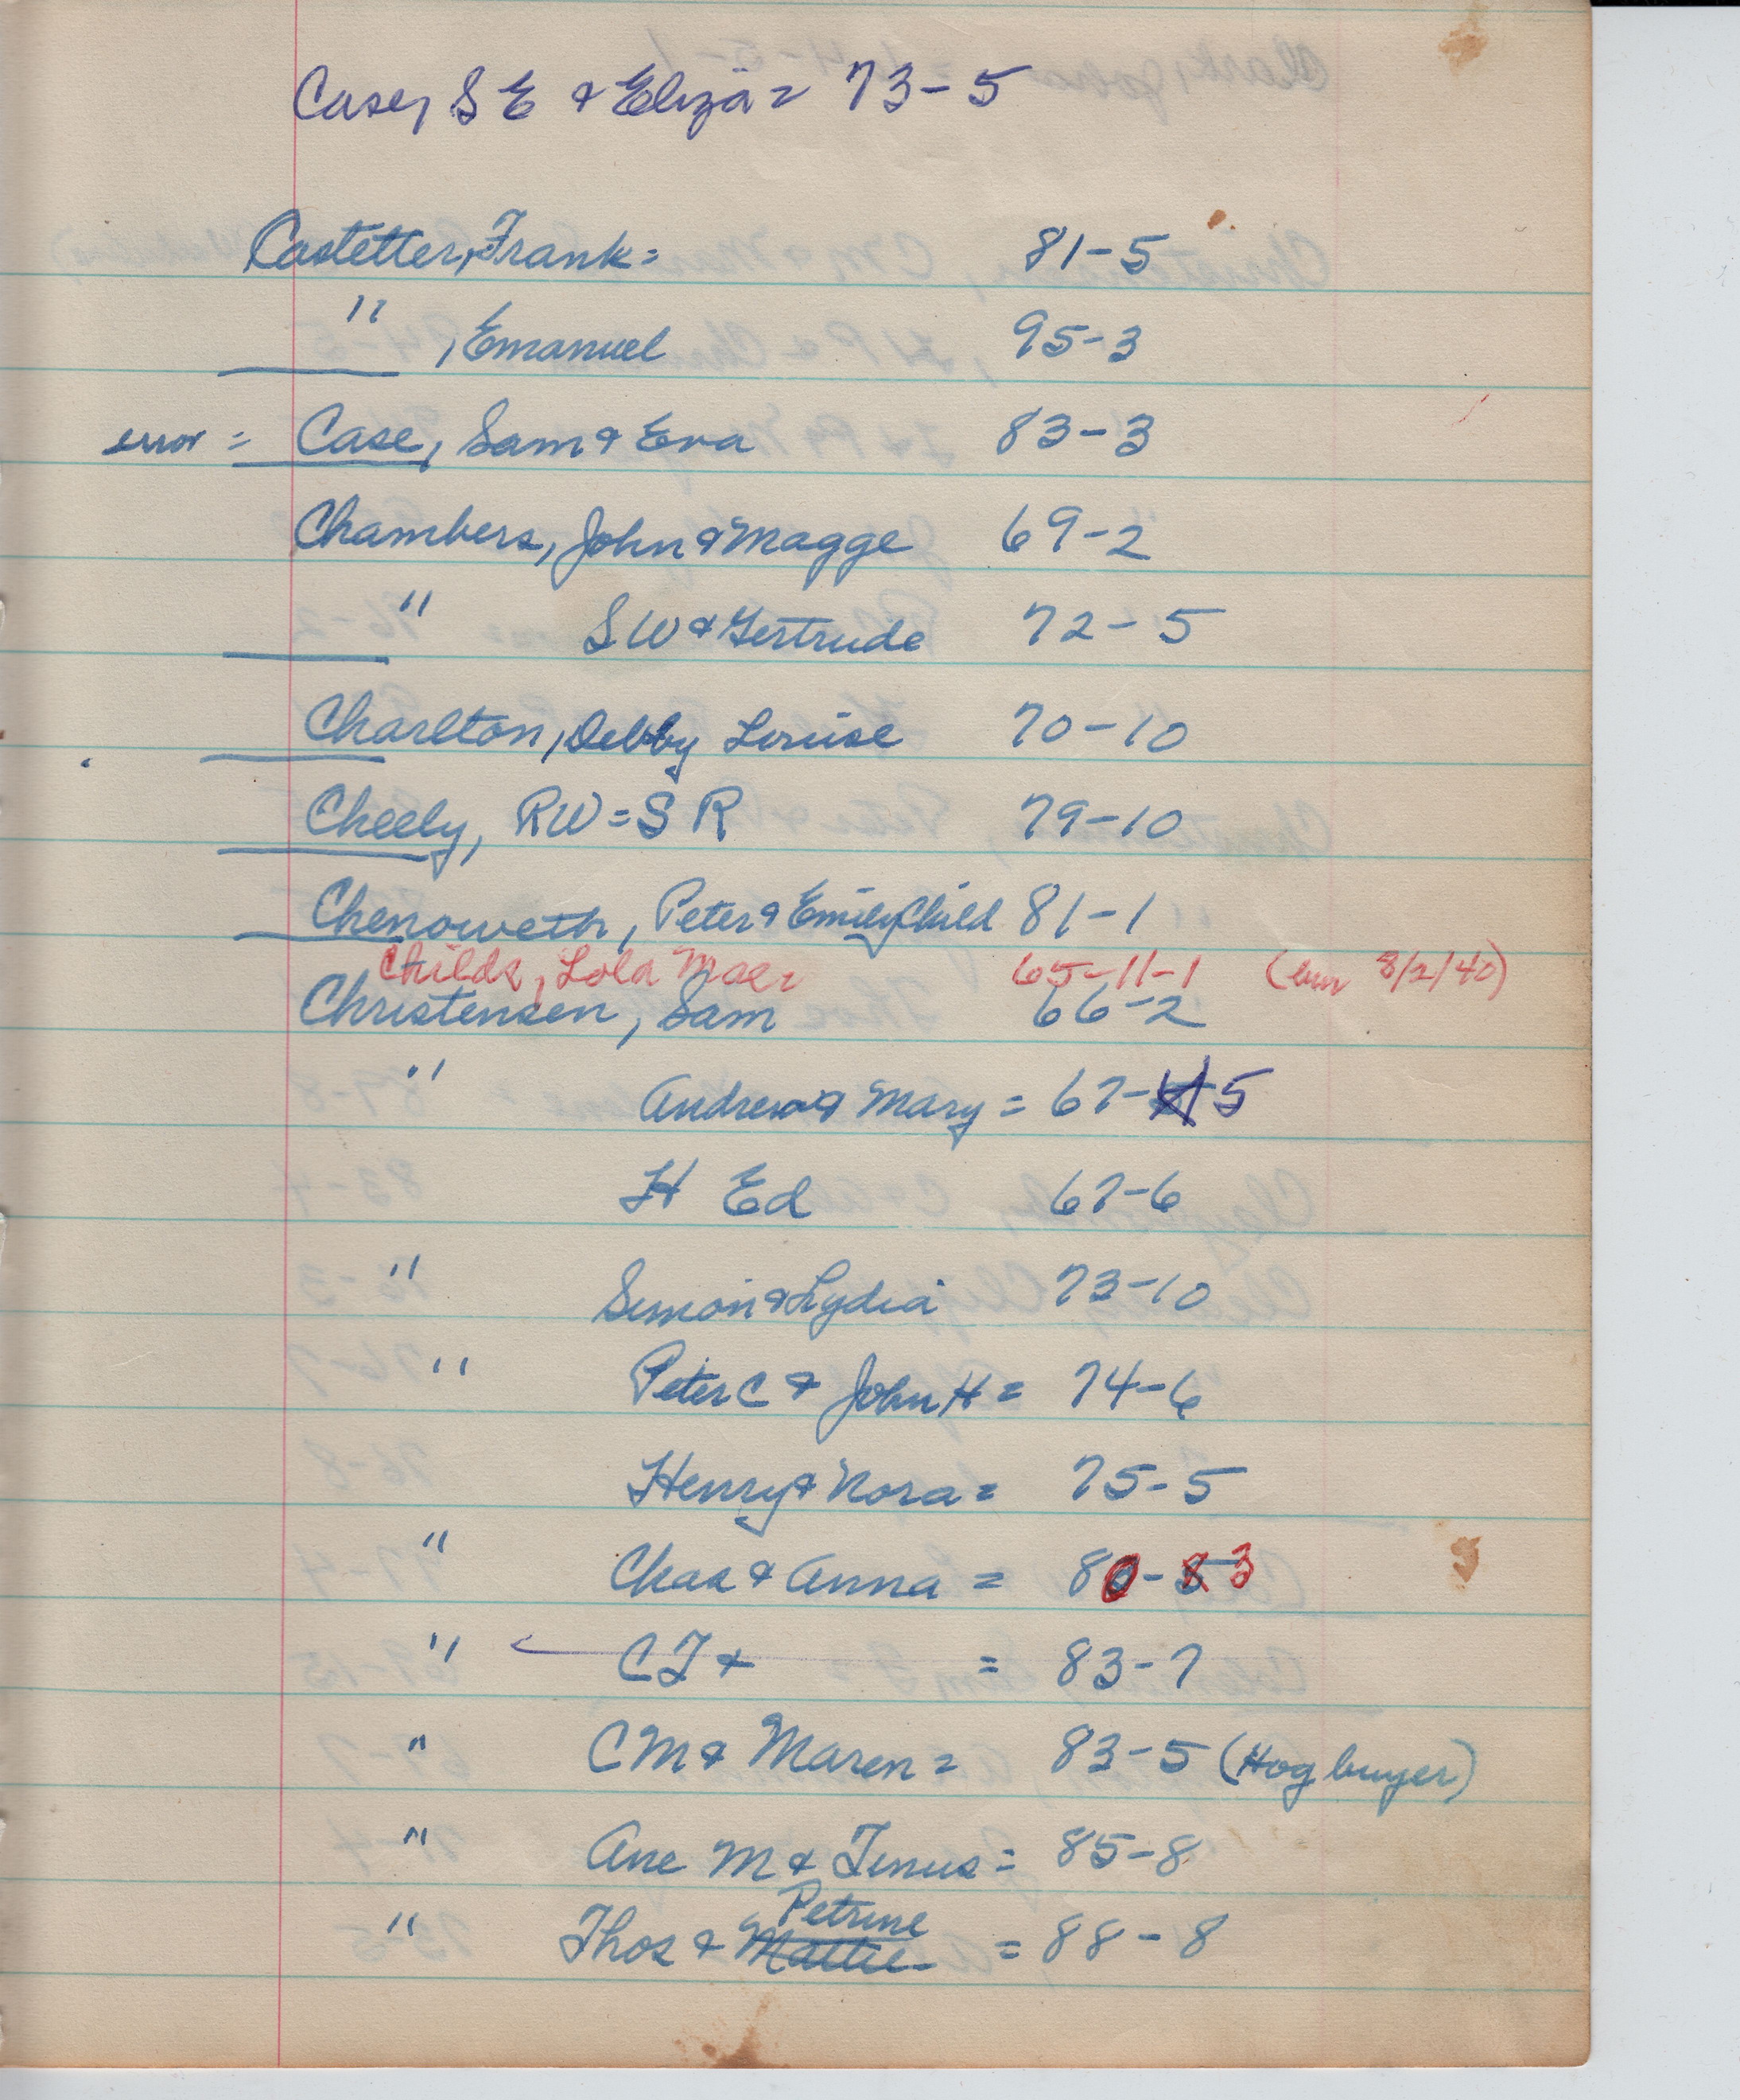 Case, S E & Eliza = 73-5
Castetter, Frank = 81-5
" , Emanuel 95-3
error = Case, Sam & Eva 83-3
Chambers, John & Magge 69-2
" S W & Gertrude 72-5
Charlton, Debby Louise 70-10
Cheely, RW = S R 79-10
Chenoweth, Peter & Emily Child 81-1
Childs, Lola Mae 65-11-1 ( 8/2/40)
Christensen, Sam 66-2
" Andrew & Mary = 67-5
H Ed 67-6
" Simon & Lydia 73-10
" Peter C & John H = 74-6
Henry & Nora = 75-5
" Chas & Anna = 80-3
" C J & = 83-7
" C M & Maren = 83-5 (Hog buyer)
" Ane M & Tinus = 85-8
Petrine
" Thos & Mattie = 88-8